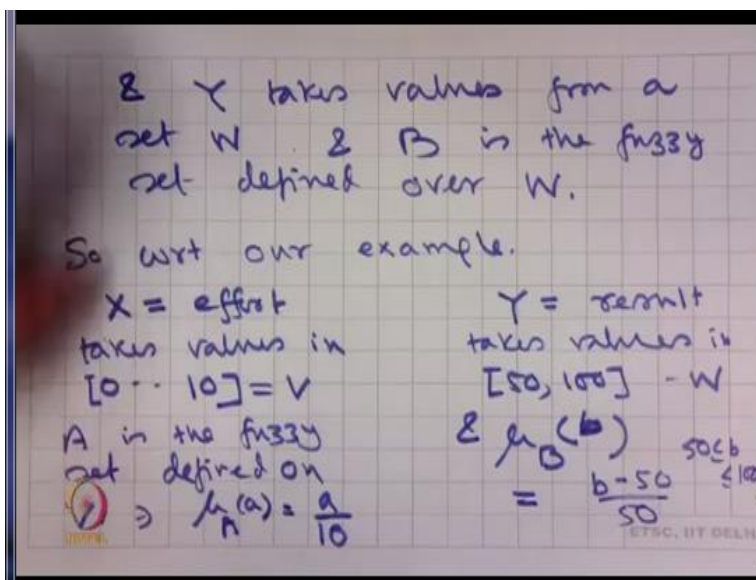 & Y takes values from a
set W & B is the fuzzy
set defined over W.
So wrt our example.
X = effort
takes values in
[0 .. 10] = V
A is the fuzzy
set defined on
⇒ μ_A(a) = a/10
Y = result
takes values in
[50, 100] - W
& μ_B(b)
= b-50/50
50≤b
≤100
ETSC, IIT DELH